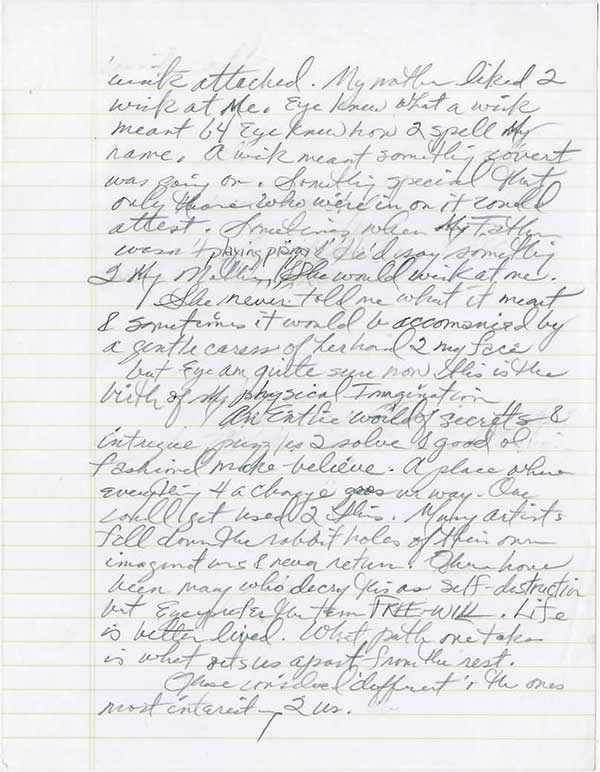 wink attached. My mother liked 2
wink at Me. Eye knew what a wink
meant b4 Eye knew how 2 spell My
name. A wink meant something covert
was going on. Something special that
only those who were in on it could
attest. Sometimes when My Father
wasn't playing piano he'd say something
2 My Mother & she would wink at me.
She never told me what it meant
& sometimes it would be accompanied by
a gentle caress of her hand 2 my face
but Eye am quite sure now this is the
birth of My physical Imagination
An Entire world of secrets &
intrigue puzzles 2 solve & good ol'
fashioned make-believe. A place where
everything 4 a change goes ur way. One
could get used 2 this. Many artists
fall down the rabbit holes of their own
imaginations & never return. There have
been many who decry this as self-destruction
but Eye prefer the term FREE-WILL. Life
is better lived. What path one takes
is what sets us apart from the rest.
Those considered 'different' r the ones
most interesting 2 us.